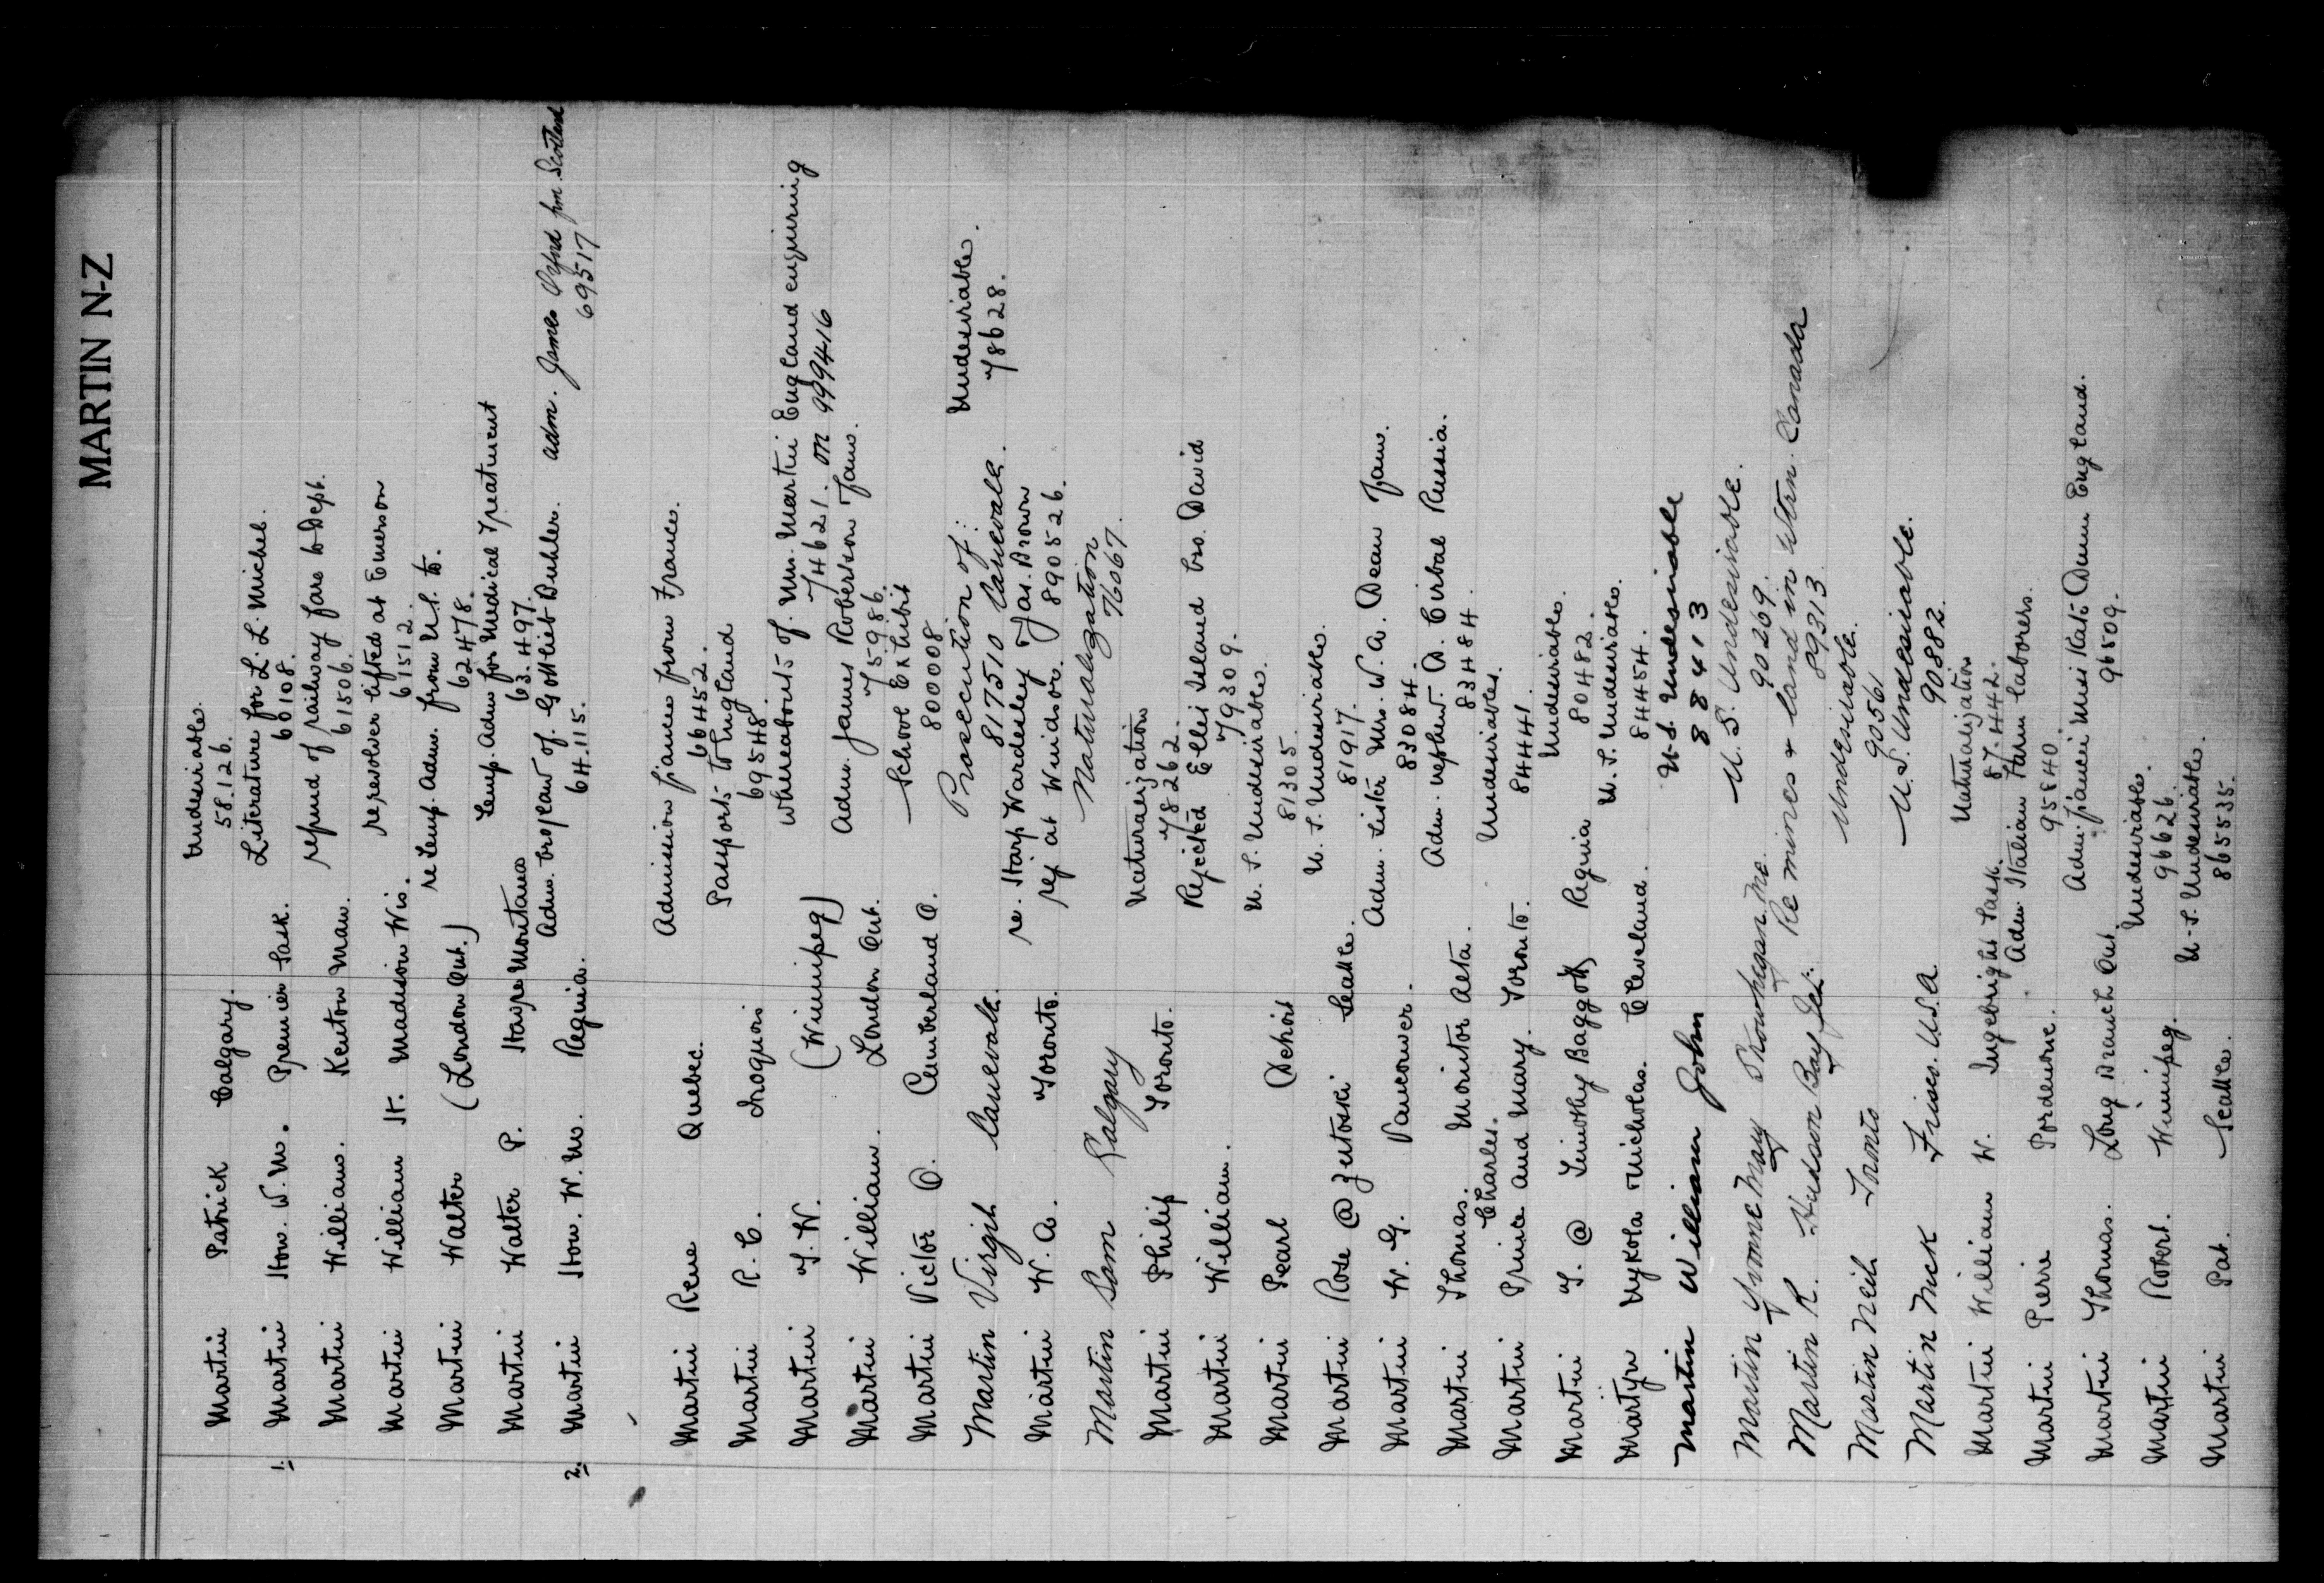 MARTIN N-Z
Martin Patrick Calgary. Undesirable.
58.126.
1. Martin Hon. W. M. Premier Sask. Literature for L. L. Michel.
60108.
Martin William. Kenton Man. refund of railway fare to Dept.
61506.
Martin William H. Madison Wis. re revolver lifted at Emerson
61512.
Martin Walter (London Ont.) re temp. adm. from U.S. to.
62478.
Martin Walter P. Havre Montana Temp. Adm for Medical Treatment
63.497.
2. Martin Hon. W. M. Regina. Adm. bro/law of Gottlieb Buhler. adm. James Oxford frm Scotland
64.115. 69517
Martin Rene Quebec. Admission fiancee from France.
66452.
Martin R. C. Iroquois Passports to England
69548.
Martin T. W. (Winnipeg) Whereabouts of Mrs. Martin England enquiring
74621. on 999416
Martin William. London Ont. Adm. James Robertson Fam.
75986.
Martin Victor O. Cumberland O. School Exhibit
800008
Martin Virgil Carievale. Prosecution of: Undesirable.
817510 Carievale. 78628.
Martin W. A. Toronto. re. Harp Wardesley Jas. Brown
rej at Windsor. 890526.
Martin Sam Calgary Naturalization
76067.
Martin Philip Toronto. Naturalization
78262.
Martin William. Rejected Ellis Island bro. David
79309.
Martin Pearl Detroit U. S. Undesirable.
81305.
Martin Rose @ Zutoski Seattle. U. S. Undesirable.
81917.
Martin W. G. Vancouver. Adm. Sister Mrs. W. A. Dean Fam.
83084.
Martin Thomas. Monitor Alta. Adm. nephew. D. Cirbal Russia.
83484.
Charles.
Martin Prince and Mary. Toronto. Undesirables.
84441.
Martin T. @ Timothy Baggott Regina Undesirable.
80482.
Martyn Mykola Nicholas. Cleveland. U. S. Undesirable.
84454.
Martin William John U.S. Undesirable
88413
Martin Yvonne Mary Skowhegan Me. U. S. Undesirable.
90269.
Martin R. Hudson Bay Jct. Re mines & land in Wtrn. Canada
89313
Martin Neil Tronto Undesirable.
90561
Martin Nick Frisco. U.S.A. U. S. Undesirable.
90882.
Martin William W. Ingebright Sask. Naturalization
87.442.
Martin Pierre Pordenone. Adm. Italian Farm laborers.
95840.
Martin Thomas. Long Branch Ont. Adm. fiancee Miss Kate Dunn England.
96509.
Martin Robert. Winnipeg. Undesirable.
96626.
Martin Pat. Seattle. U. S. Undesirable.
865535.